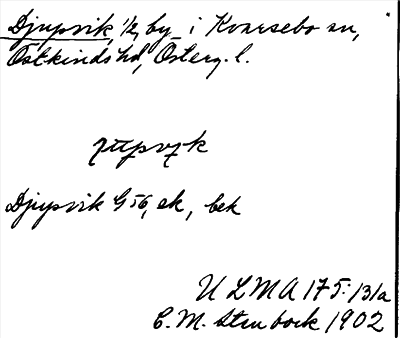 Djupsvik, 1/2, by i Kvarsebo sn,
Östkinds hd, Österg. l.
Djupsvik G 56, ek, bek
ULMA 175:131a
C. M. Stenbock 1902